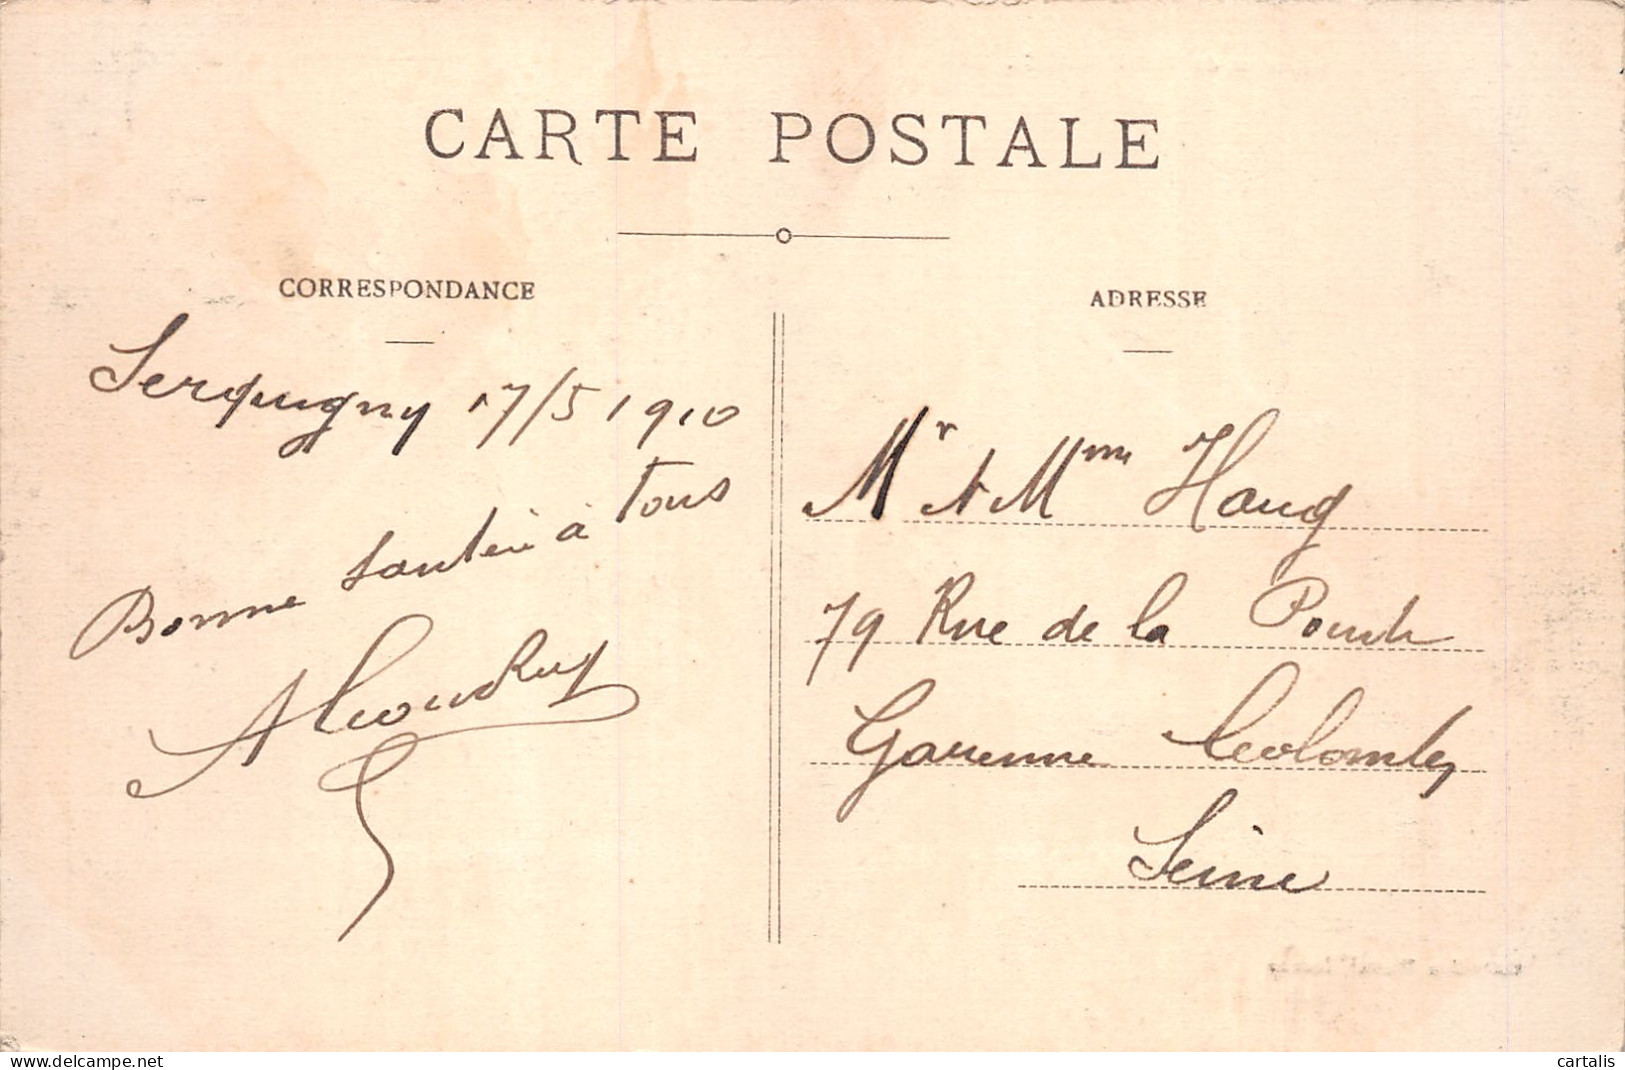 CARTE POSTALE
CORRESPONDANCE
Serquigny 17/5 1910
Bonne santée à tous
ADRESSE
Mr et Mme Haug
79 Rue de la Pointe
Garenne Colombes
Seine
delcampe.net
cartalis